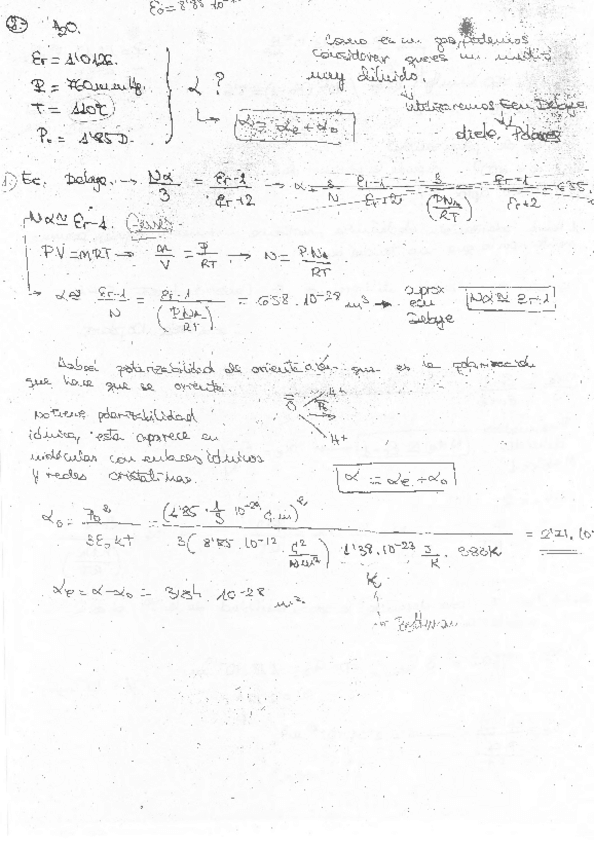 ε₀ = 8'85 10⁻¹²
8.- H₂O.
εr = 1'0126.
P = 760 mmHg.
T = 110º
P₀ = 1'85 D.
α ?
α = αe + α₀
Como es un gas, podemos
considerar que es un medio
muy diluido.
utilizaremos Ecu Debye
dielc. Polares
Ec. Debye. → Nα/3 = εr-1/εr+2 → α = 3/N εr-1/εr+2 = 3/(PNA/RT) εr-1/εr+2 = 6'35.
Nα ≈ εr-1.
PV = nRT → n/V = P/RT → N = PNA/RT
→ α ≈ εr-1/N = εr-1/(PNA/RT) = 6'58 · 10⁻²⁸ m³ → aprox ecu Debye Nα ≈ εr-1
polarizabilidad de orientación que es la polarización
que hace que se oriente.
No tiene polarizabilidad
iónica, esta aparece en
moléculas con enlaces iónicos
y redes cristalinas.
O H+ P₀ H+
α = αe + α₀
α₀ = P₀²/3ε₀kT = (1'85 · 1/3 10⁻²⁹ C.m)²/3(8'85 · 10⁻¹² C²/Nm²) 1'38 · 10⁻²³ J/K · 383K = 2'71 · 10
αe = α - α₀ = 3'84 · 10⁻²⁸ m³.
K